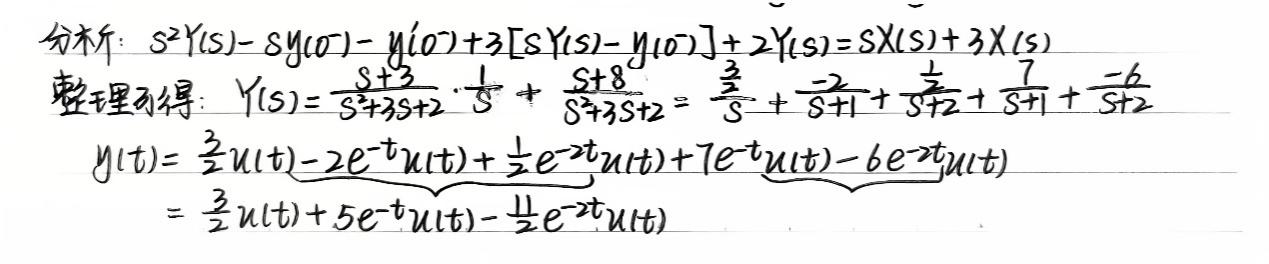 分析: S²Y(S)-Sy(0⁻)-y'(0⁻)+3[SY(S)-y(0⁻)]+2Y(S)=SX(S)+3X(S)
整理可得: Y(S)=\frac{S+3}{S²+3S+2}·\frac{1}{S}+\frac{S+8}{S²+3S+2}=\frac{\frac{3}{2}}{S}+\frac{-2}{S+1}+\frac{\frac{1}{2}}{S+2}+\frac{7}{S+1}+\frac{-6}{S+2}
y(t)=\frac{3}{2}u(t)-2e^{-t}u(t)+\frac{1}{2}e^{-2t}u(t)+7e^{-t}u(t)-6e^{-2t}u(t)
=\frac{3}{2}u(t)+5e^{-t}u(t)-\frac{11}{2}e^{-2t}u(t)